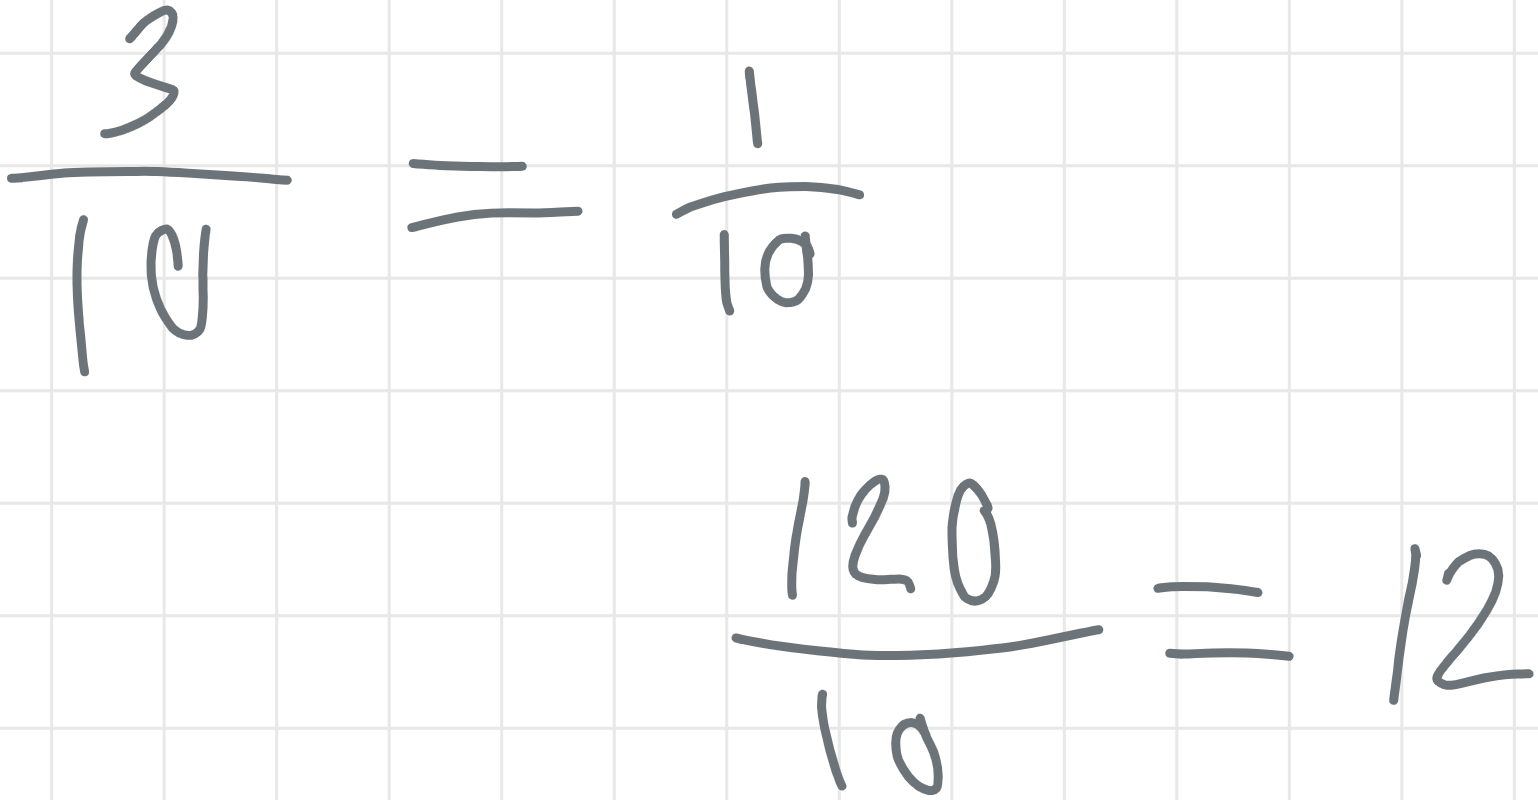 3/10 = 1/10
120/10 = 12